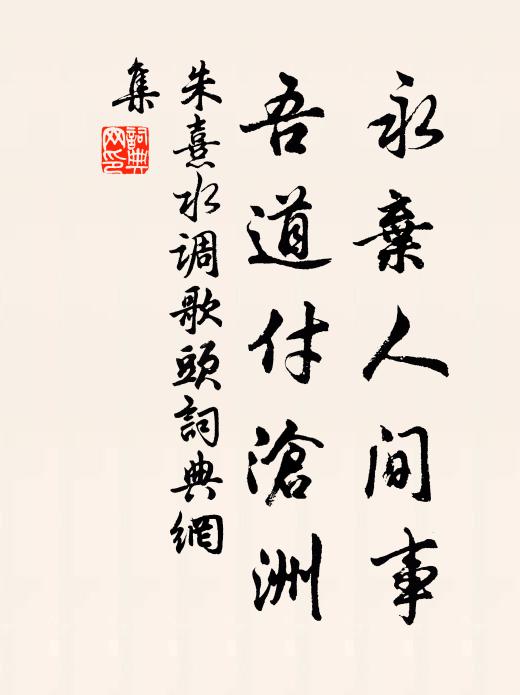 永棄人间事
吾道付滄洲
朱熹水调歌頭詞典網
集
詞典網印